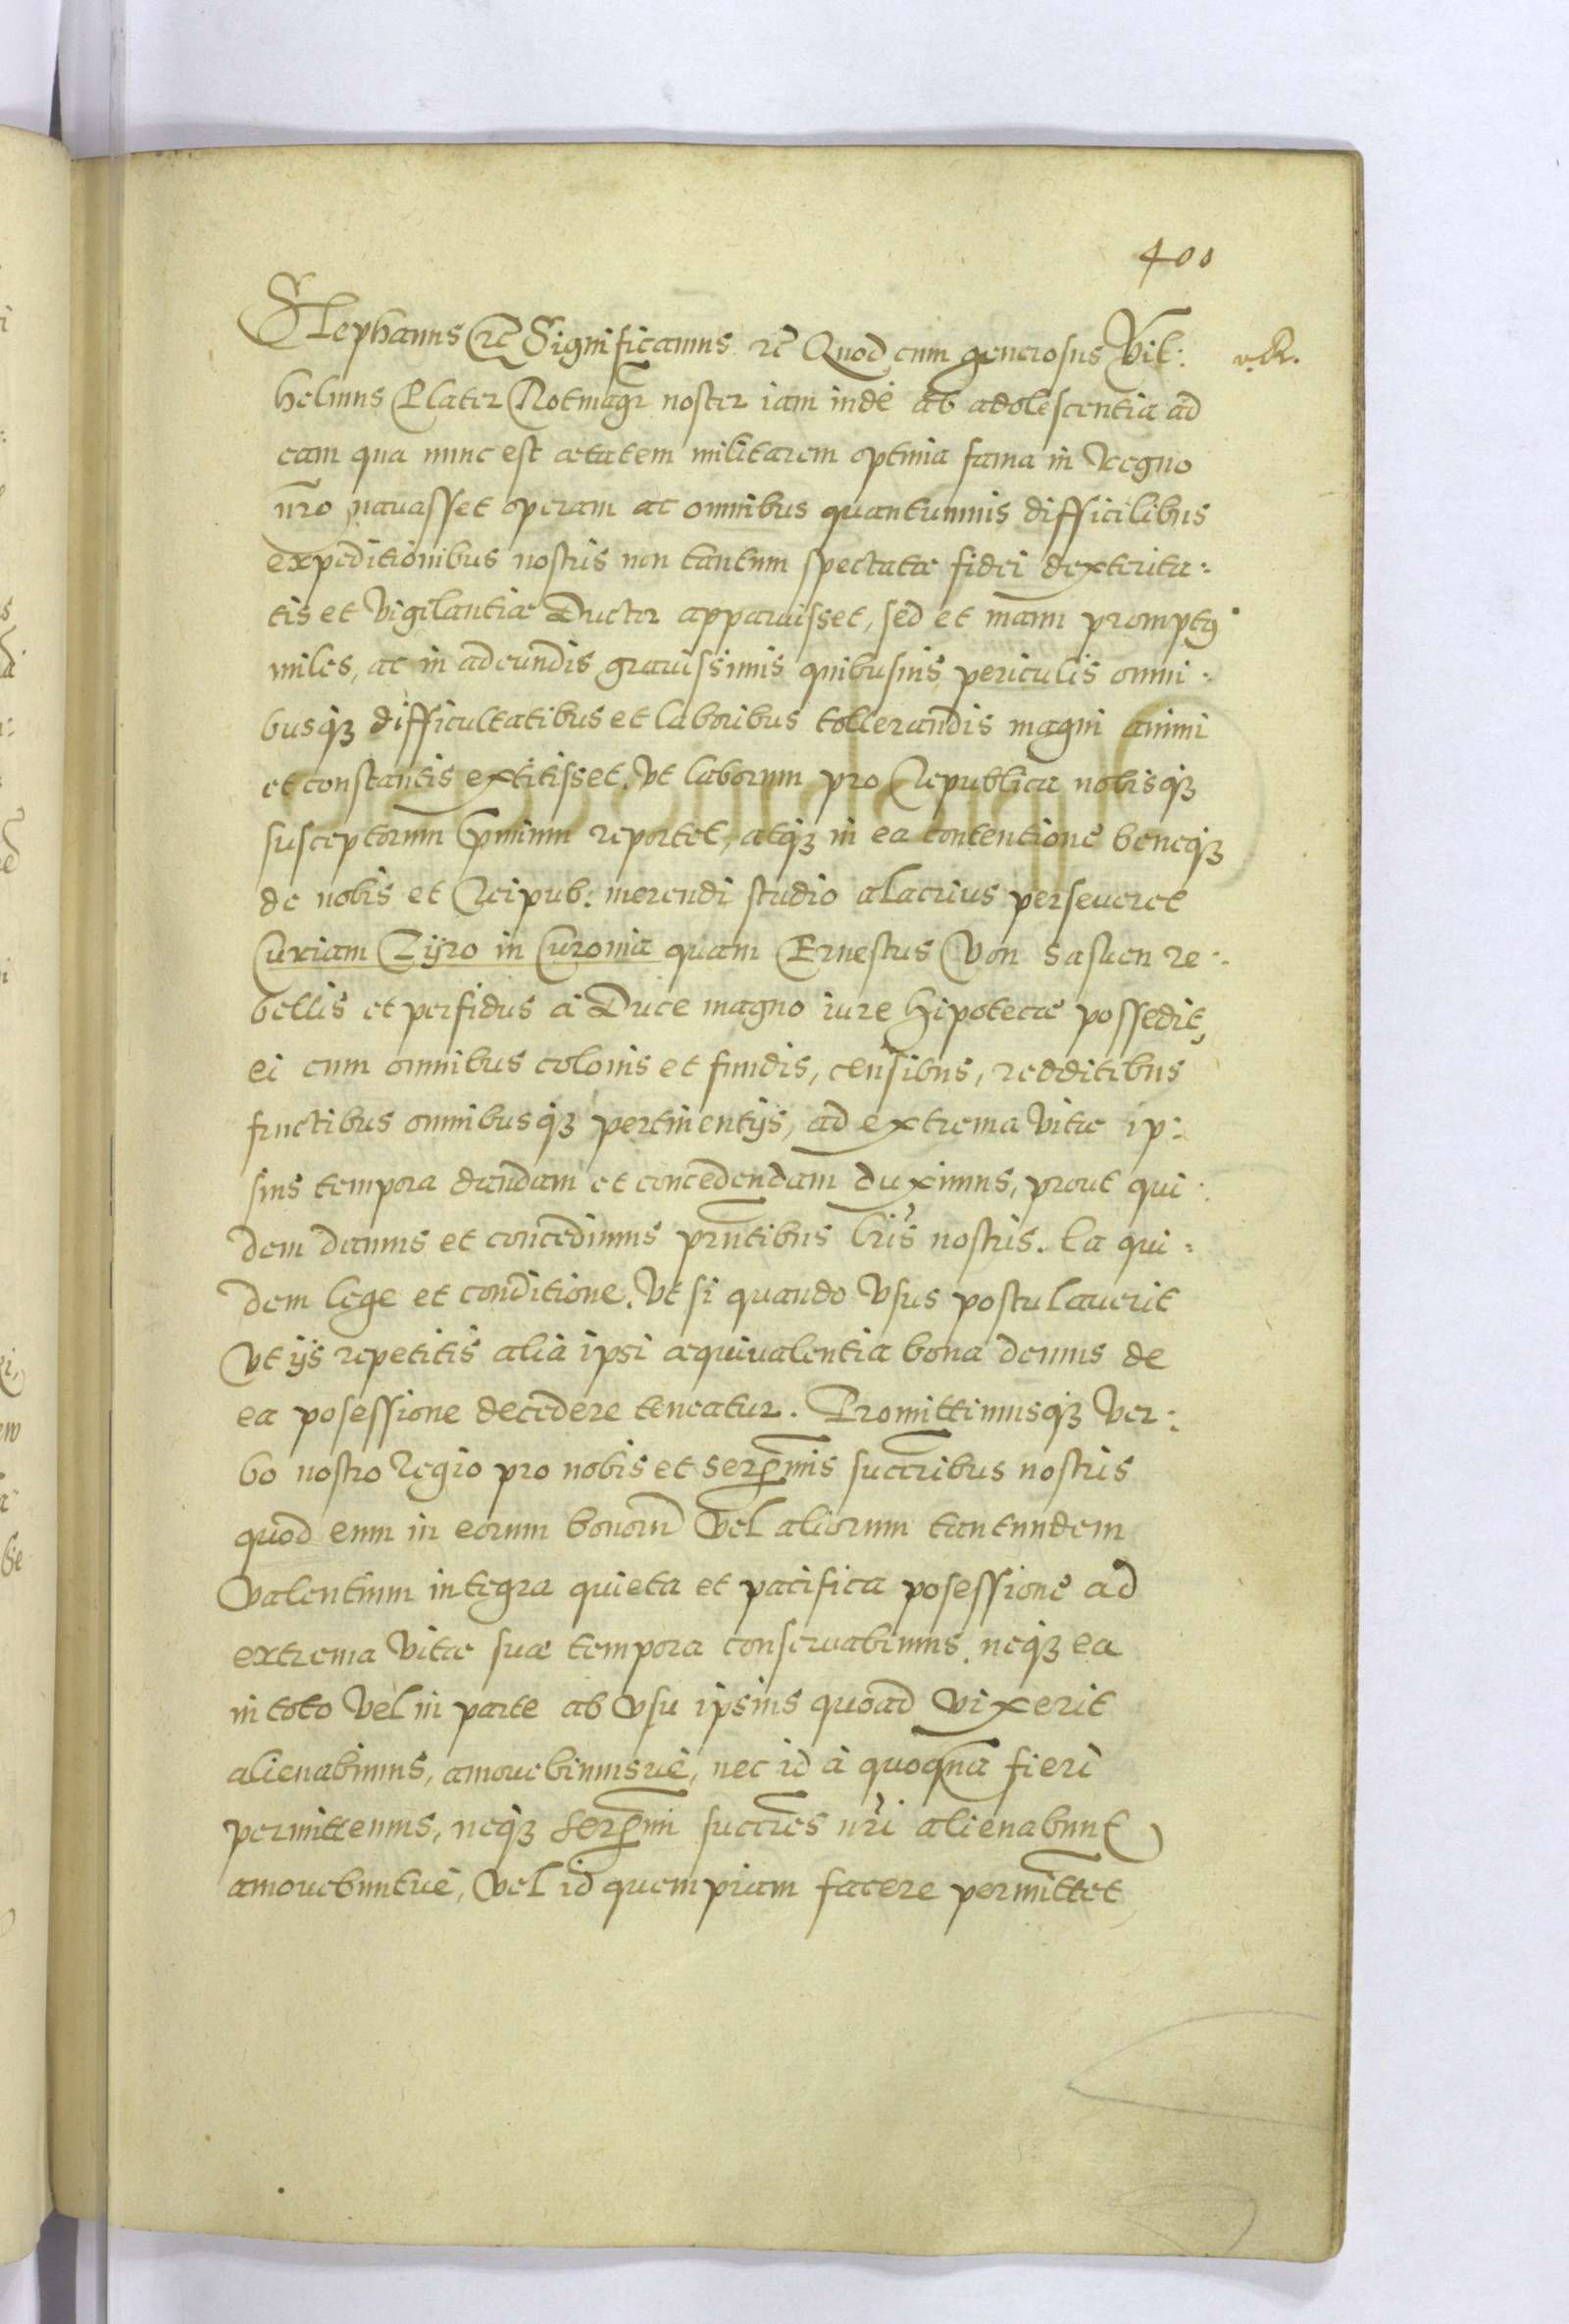 400
Stephanus etc Significamus etc Quod cum generosus Vil:
v. R.
helmus Plater Rotmagr noster iam inde ab adolescentia ad
eam qua nunc est ætatem militarem optima fama in Regno
nro navasset operam ac omnibus quantumuis difficilibus
expeditionibus nostris non tantum spectatæ fidei dexterita:
tis et Vigilantiæ Ductor apparuisset, sed et manu promptus
miles, ac in adeundis grauissimis quibusuis periculis omni:
busq3 difficultatibus et laboribus tollerandis magni animi
et constantis extitisset. Vt laborum pro Republica nobisq3
susceptorum præmium reportet, atq3 in ea contentione beneq3
de nobis et Reipub: merendi studio alacrius perseueret
Curiam Zyro in Curonia quam Ernestus Von Sasuen re:
bellis et perfidus à Duce magno iure Hipotecæ possedit,
ei cum omnibus colonis et fundis, censibus, redditibus
fructibus omnibusq3 pertinentijs, ad extrema Vitæ ip:
sius tempora dandam et concedendam duximus, prout qui:
dem damus et concedimus prntibus lris nostris. Ea qui:
dem lege et conditione. Vt si quando Vsus postulauerit
Vt ijs repetitis alia ipsi æquivalentia bona demus de
ea posessione decedere teneatur. Promittimusq3 Ver:
bo nostro Regio pro nobis et Serenmis succribus nostris
quod eum in eorum bonorum Vel aliorum tantundem
Valentium integra quieta et pacifica posessione ad
extrema Vitæ suæ tempora conseruabimus. neq3 ea
in toto Vel in parte ab Vsu ipsius quoad Vixerit
alienabimus, amouebimusue, nec id à quoqna fieri
permittemus, neq3 Serenmi succres nri alienabunt
amouebuntue, Vel id quempiam facere permittet